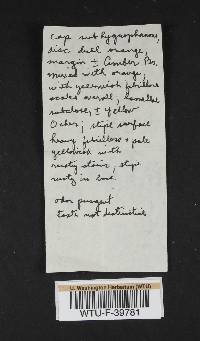 cap not hygrophanous,
disc dull orange,
margin ± Amber Br.
mixed with orange,
with yellowish fibrillose
scales overall, lamellae
subclose, ± yellow
Ocher; stipe surface
heavy fibrillose + pale
yellowish with
rusty stains, stipe
rusty in base.
odor pungent
taste not distinctive
U. Washington Herbarium (WTU)
WTU-F-39781